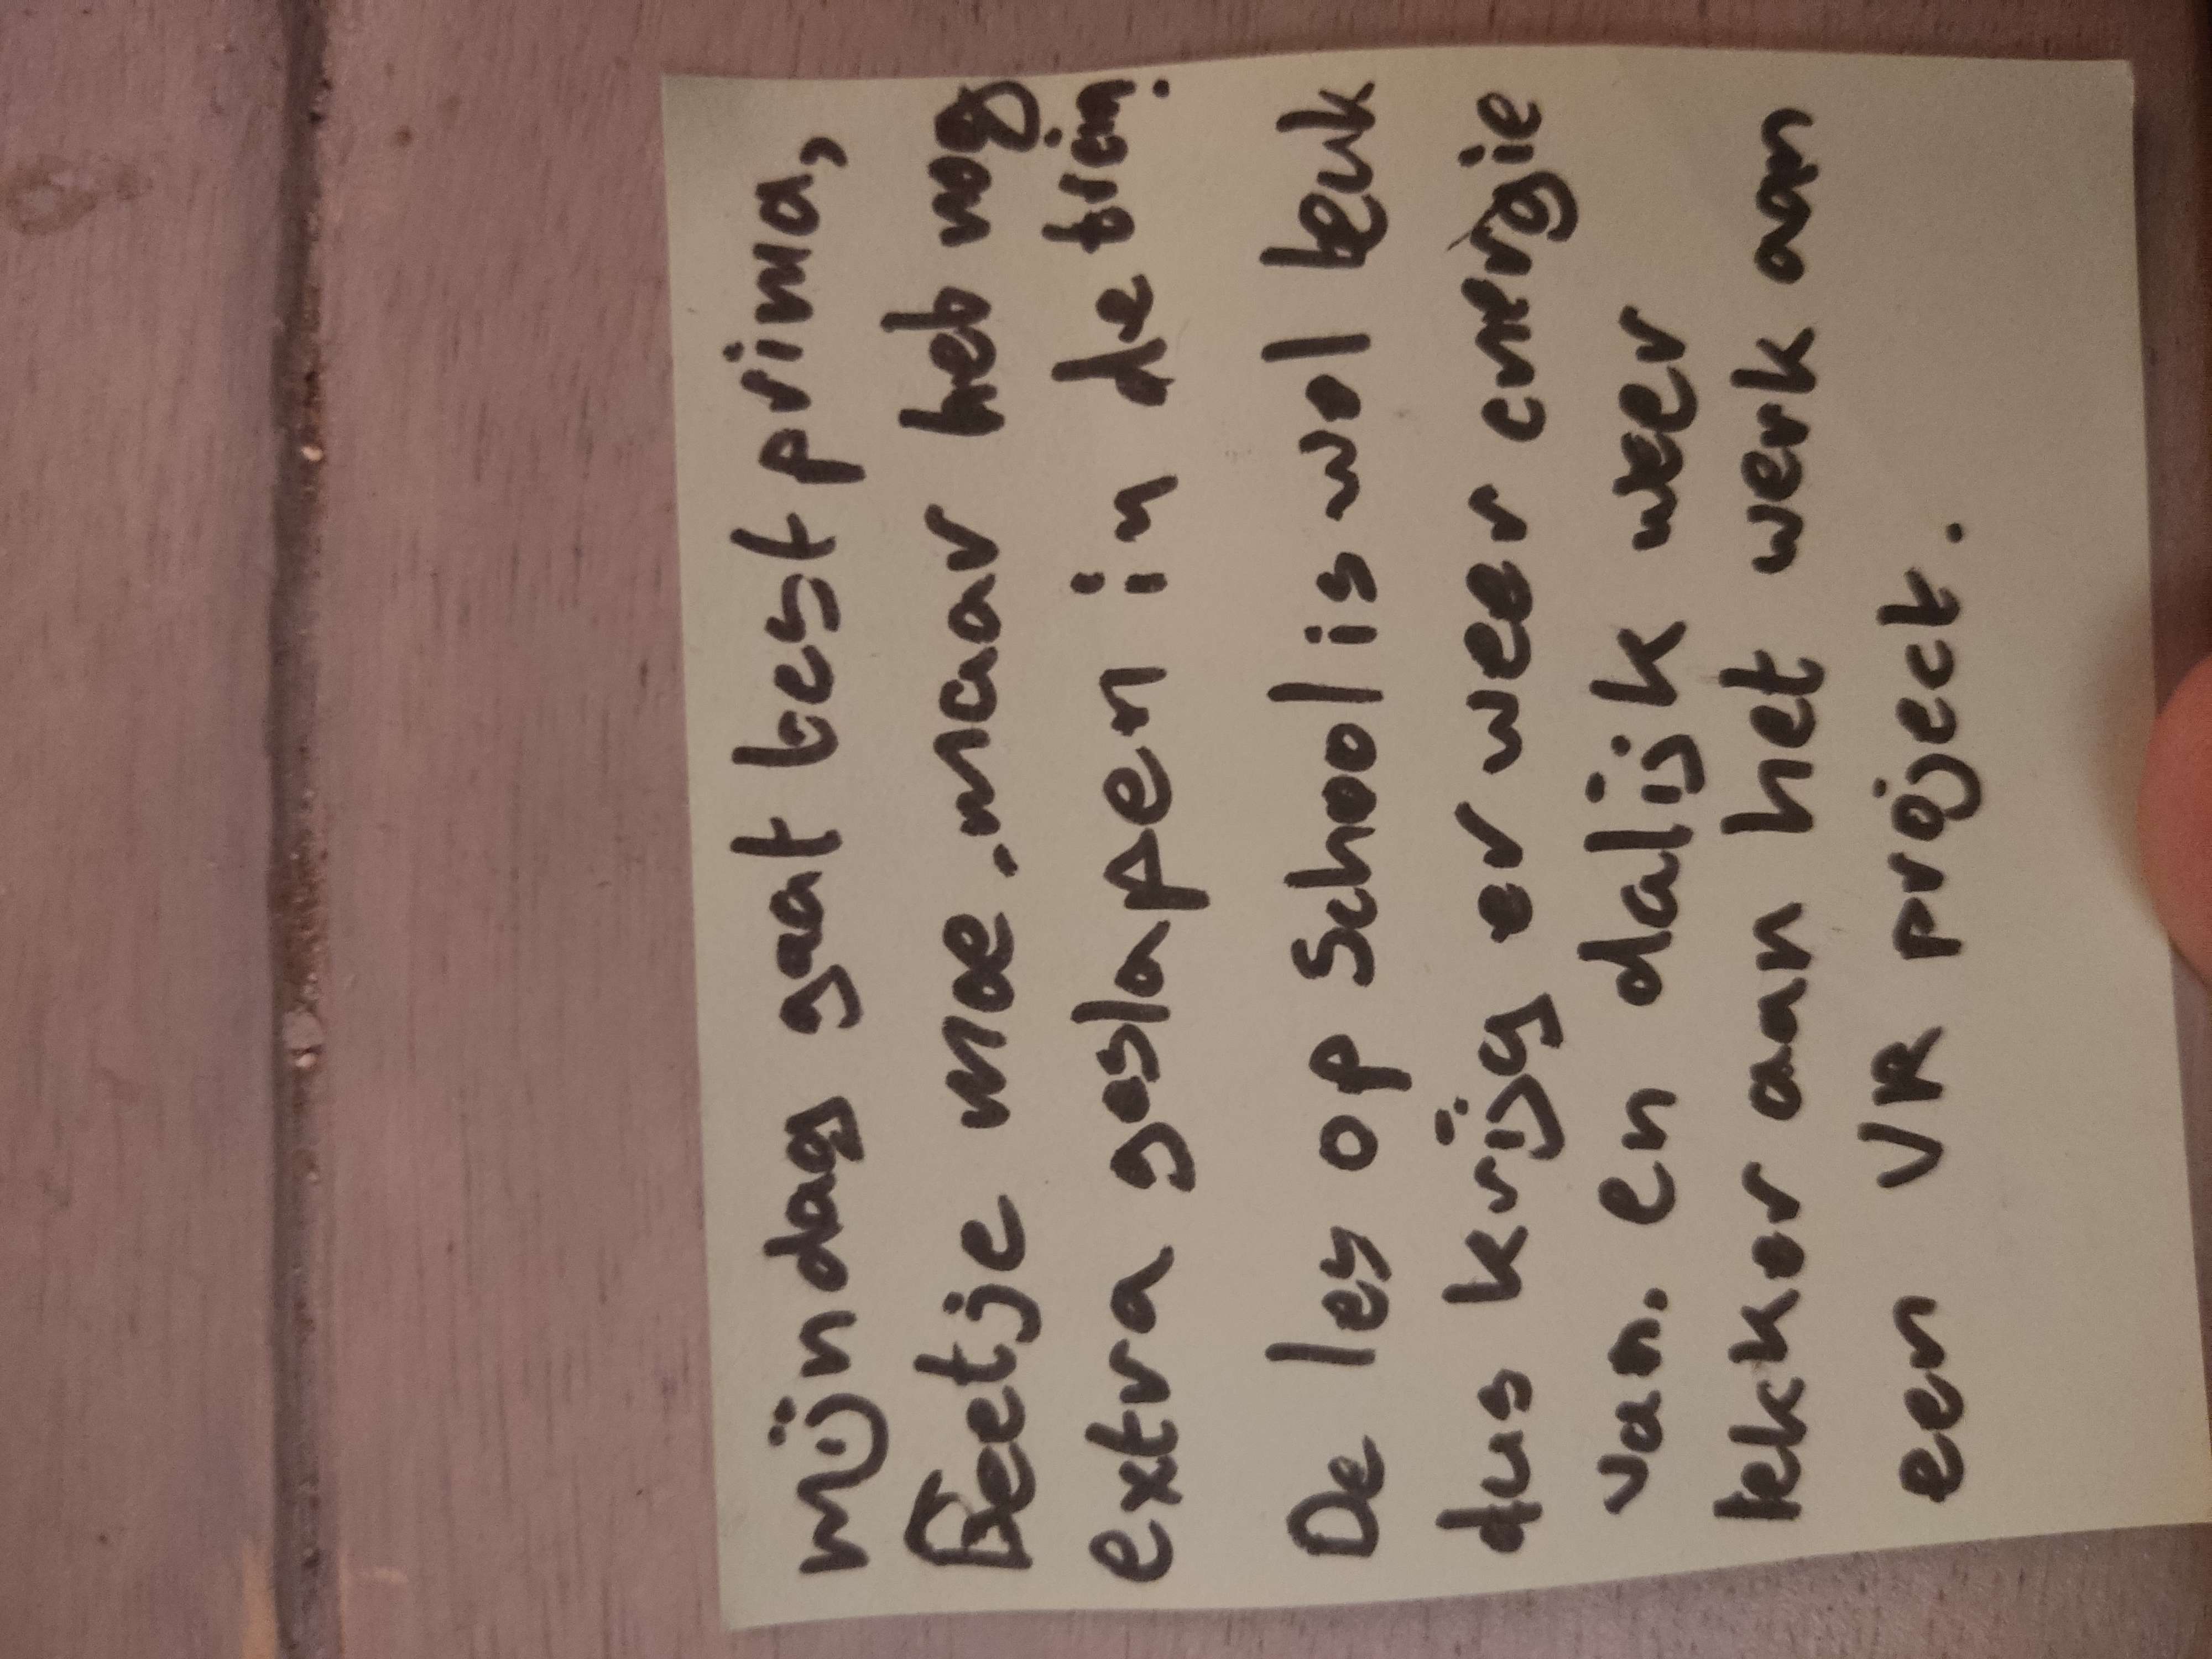 mijn dag gaat best prima,
Beetje moe. maar heb nog
extra geslapen in de trein.
De les op School is wel leuk
dus krijg er weer energie
van. en dalijk weer
lekker aan het werk aan
een VR project.